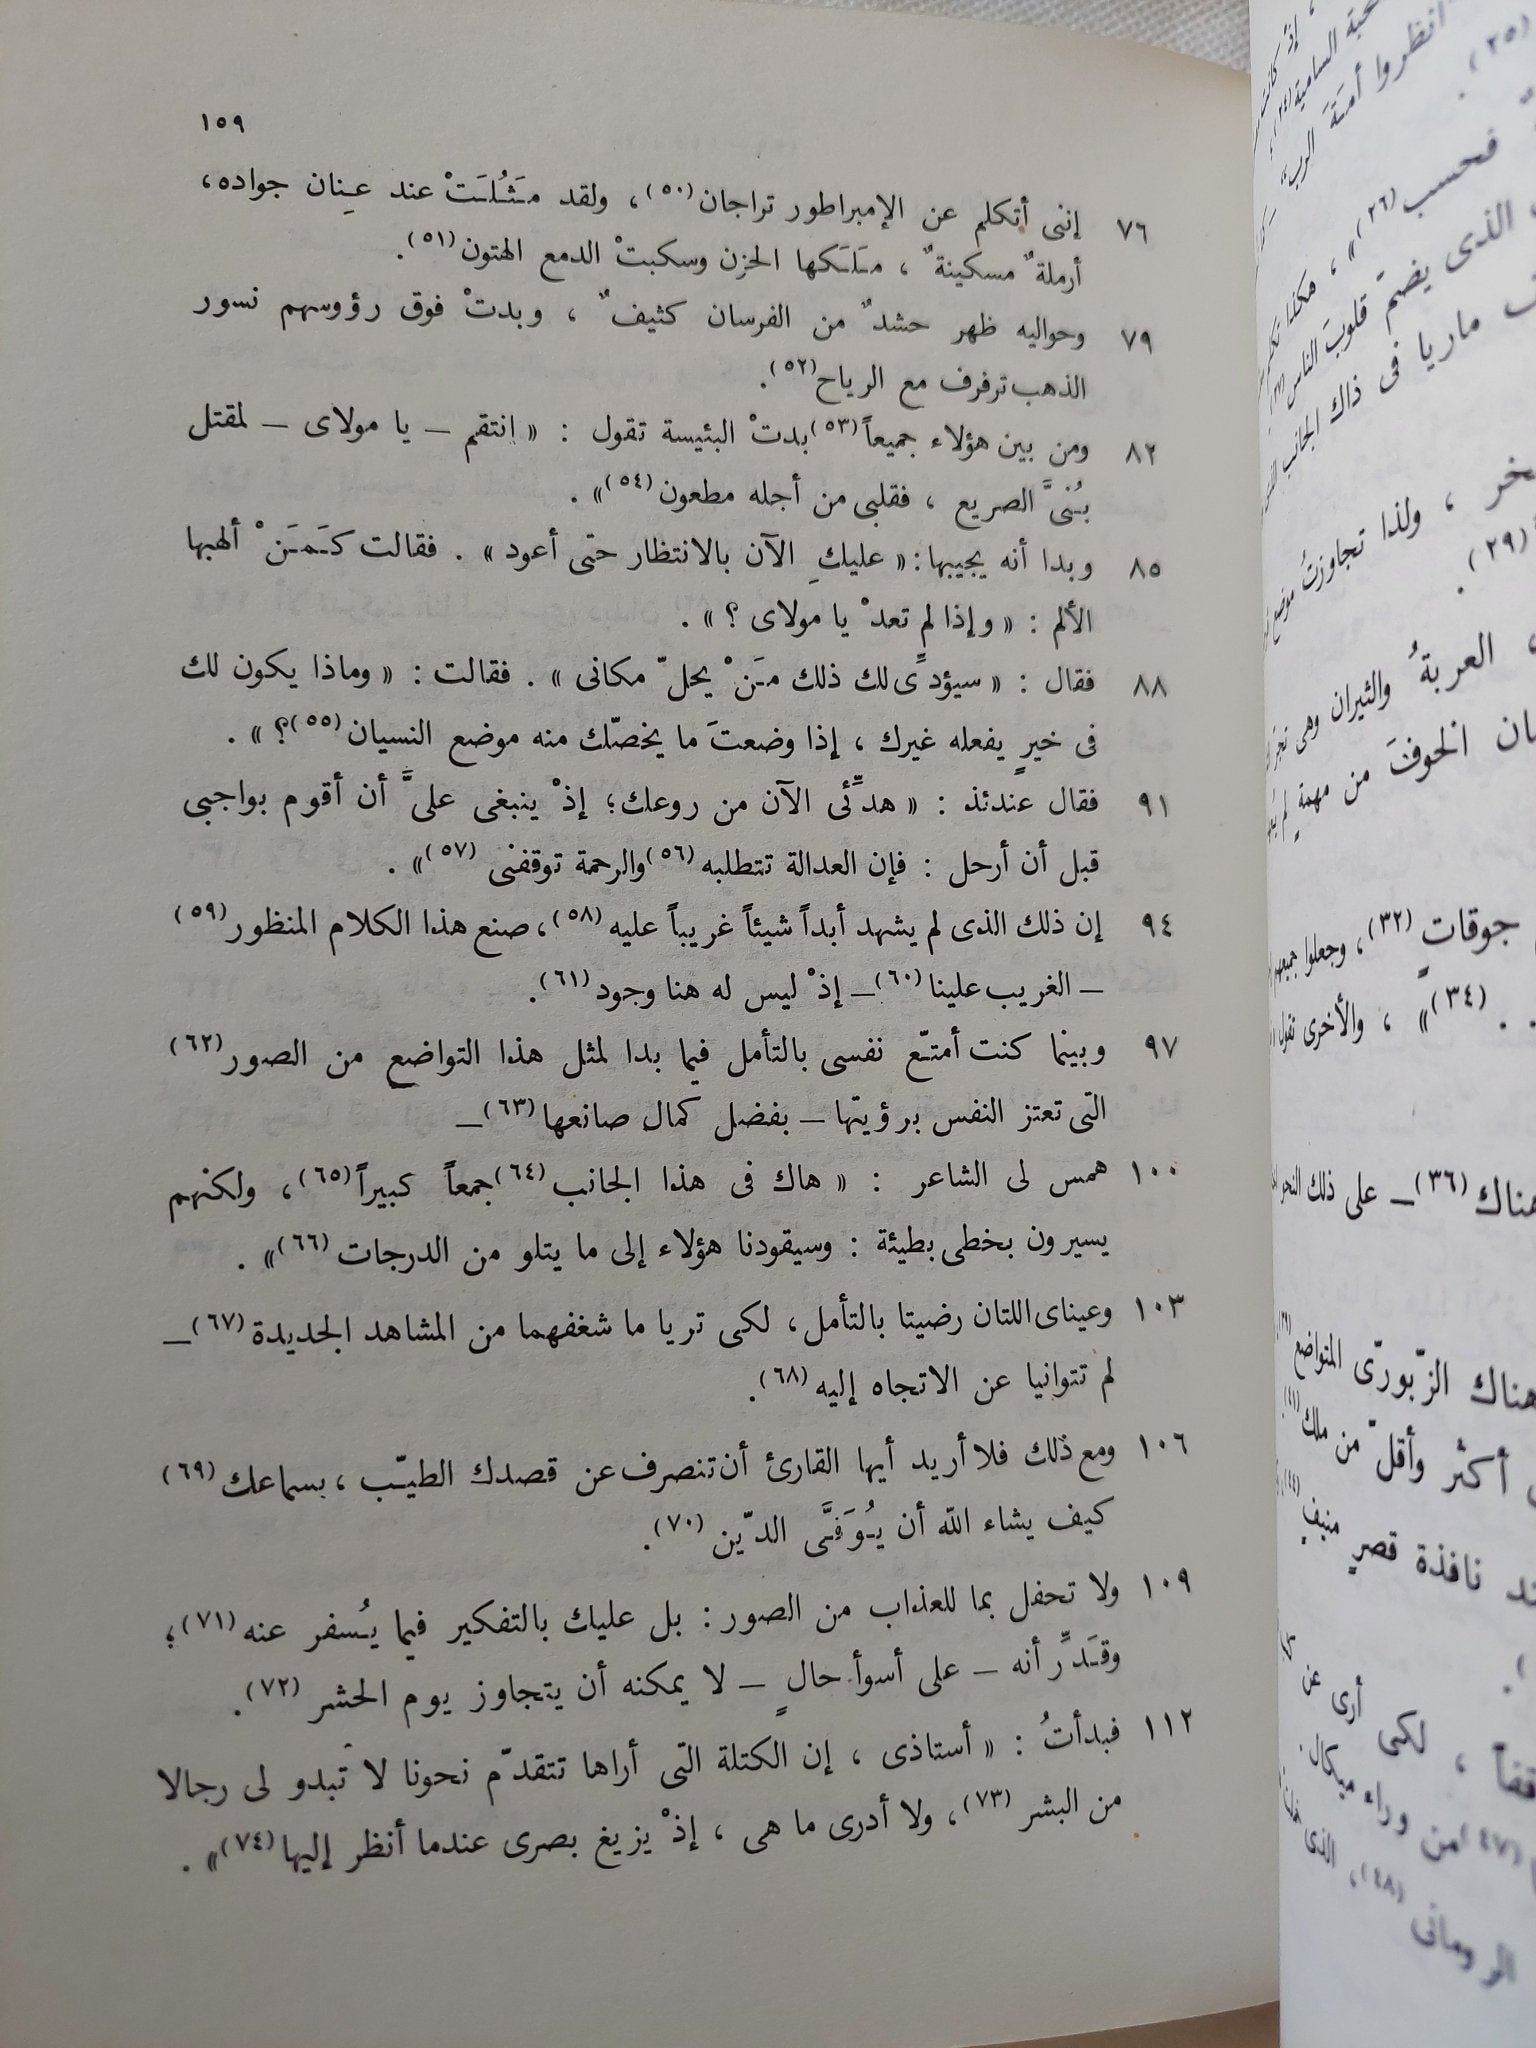 ١٥٩
٧٦ إننى أتكلم عن الإمبراطور تراجان (٥٠) ، ولقد مَثُلَتْ عند عِنان جواده ،
أرملةٌ مسكينةٌ ، مَلَكها الحزن وسكبتْ الدمع الهتون (٥١) .
٧٩ وحواليه ظهر حشدٌ من الفرسان كثيفٌ ، وبدتْ فوق رؤوسهم نسور
الذهب ترفرف مع الرياح (٥٢) .
٨٢ ومن بين هؤلاء جميعاً (٥٣) بدتْ البئيسة تقول : « انتقم – يا مولاى – لمقتل
بُنىَّ الصريع ، فقلبى من أجله مطعون (٥٤) » .
٨٥ وبدا أنه يجيبها : « عليكِ الآن بالانتظار حتى أعود » . فقالت كَمَنْ ألهبها
الألم : « وإذا لم تعدْ يا مولاى ؟ » .
٨٨ فقال : « سيؤدِّى لك ذلك مَنْ يحلّ مكانى » . فقالت : « وماذا يكون لك
فى خيرٍ يفعله غيرك ، إذا وضعتَ ما يخصّك منه موضع النسيان (٥٥) ؟ » .
٩١ فقال عندئذ : « هدِّئى الآن من روعك ؛ إذْ ينبغى علىَّ أن أقوم بواجبى
قبل أن أرحل : فإن العدالة تتطلبه (٥٦) والرحمة توقفنى (٥٧) » .
٩٤ إن ذلك الذى لم يشهد أبداً شيئاً غريباً عليه (٥٨) ، صنع هذا الكلام المنظور (٥٩)
– الغريب علينا (٦٠) – إذْ ليس له هنا وجود (٦١) .
٩٧ وبينما كنت أمتّع نفسى بالتأمل فيما بدا لمثل هذا التواضع من الصور (٦٢)
التى تعتز النفس برؤيتها – بفضل كمال صانعها (٦٣) –
١٠٠ همس لى الشاعر : « هاك فى هذا الجانب (٦٤) جمعاً كبيراً (٦٥) ، ولكنهم
يسيرون بخطى بطيئة : وسيقودنا هؤلاء إلى ما يتلو من الدرجات (٦٦) » .
١٠٣ وعيناى اللتان رضيتا بالتأمل ، لكى تريا ما شغفهما من المشاهد الجديدة (٦٧) –
لم تتوانيا عن الاتجاه إليه (٦٨) .
١٠٦ ومع ذلك فلا أريد أيها القارئ أن تنصرف عن قصدك الطيّب ، بسماعك (٦٩)
كيف يشاء الله أن يُوَفَّى الدّين (٧٠) .
١٠٩ ولا تحفل بما للعذاب من الصور : بل عليك بالتفكير فيما يُسفر عنه (٧١) ؛
وقَدِّر أنه – على أسوأ حالٍ – لا يمكنه أن يتجاوز يوم الحشر (٧٢) .
١١٢ فبدأتُ : « أستاذى ، إن الكتلة التى أراها تتقدّم نحونا لا تبدو لى رجالا
من البشر (٧٣) ، ولا أدرى ما هى ، إذْ يزيغ بصرى عندما أنظر إليها (٧٤) » .
إذ كانت
السامية (٢٤)
انظروا أمَةَ الرب
(٢٥) .
فحسب (٢٦) » ، هكذا تكلم
الذى يضمّ قلوبَ الناس
ماريا فى ذاك الجانب
، ولذا تجاوزتُ موضع
(٢٩) .
، العربةُ والثيران وهى تجرّ
الخوفَ من مهمةٍ لم
جوقاتٍ (٣٢) ، وجعلوا
. (٣٤) » ، والأخرى تقول
هناك (٣٦) – على ذلك النحو
هناك الزّبورّى المتواضع
أكثر وأقلّ من ملك (٤١)
نافذة قصرٍ منيفٍ
، لكى أرى عن
(٤٧) من وراء ميكال
الرومانى (٤٨) ، الذى